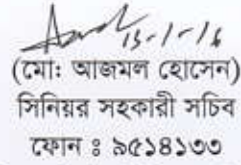 ১৩-১-১৬
(মোঃ আজমল হোসেন)
সিনিয়র সহকারী সচিব
ফোন ঃ ৯৫১৪১৩৩